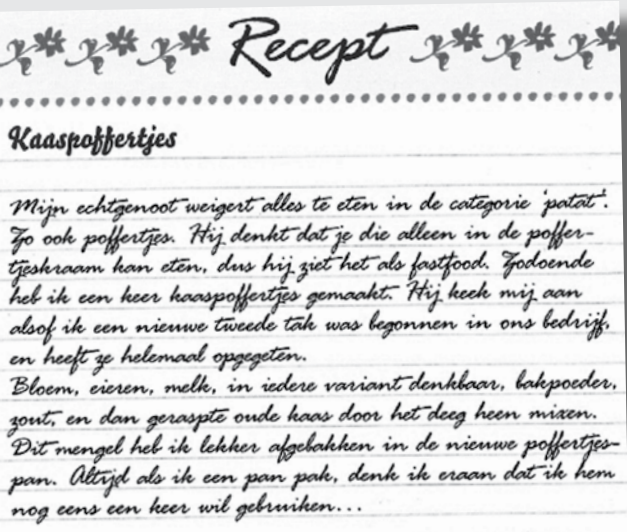 Recept
Kaaspoffertjes
Mijn echtgenoot weigert alles te eten in de categorie 'patat'.
Zo ook poffertjes. Hij denkt dat je die alleen in de poffer-
tjeskraam kan eten, dus hij ziet het als fastfood. Zodoende
heb ik een keer kaaspoffertjes gemaakt. Hij keek mij aan
alsof ik een nieuwe tweede tak was begonnen in ons bedrijf,
en heeft ze helemaal opgegeten.
Bloem, eieren, melk, in iedere variant denkbaar, bakpoeder,
zout, en dan geraspte oude kaas door het deeg heen mixen.
Dit mengel heb ik lekker afgebakken in de nieuwe poffertjes-
pan. Altijd als ik een pan pak, denk ik eraan dat ik hem
nog eens een keer wil gebruiken...